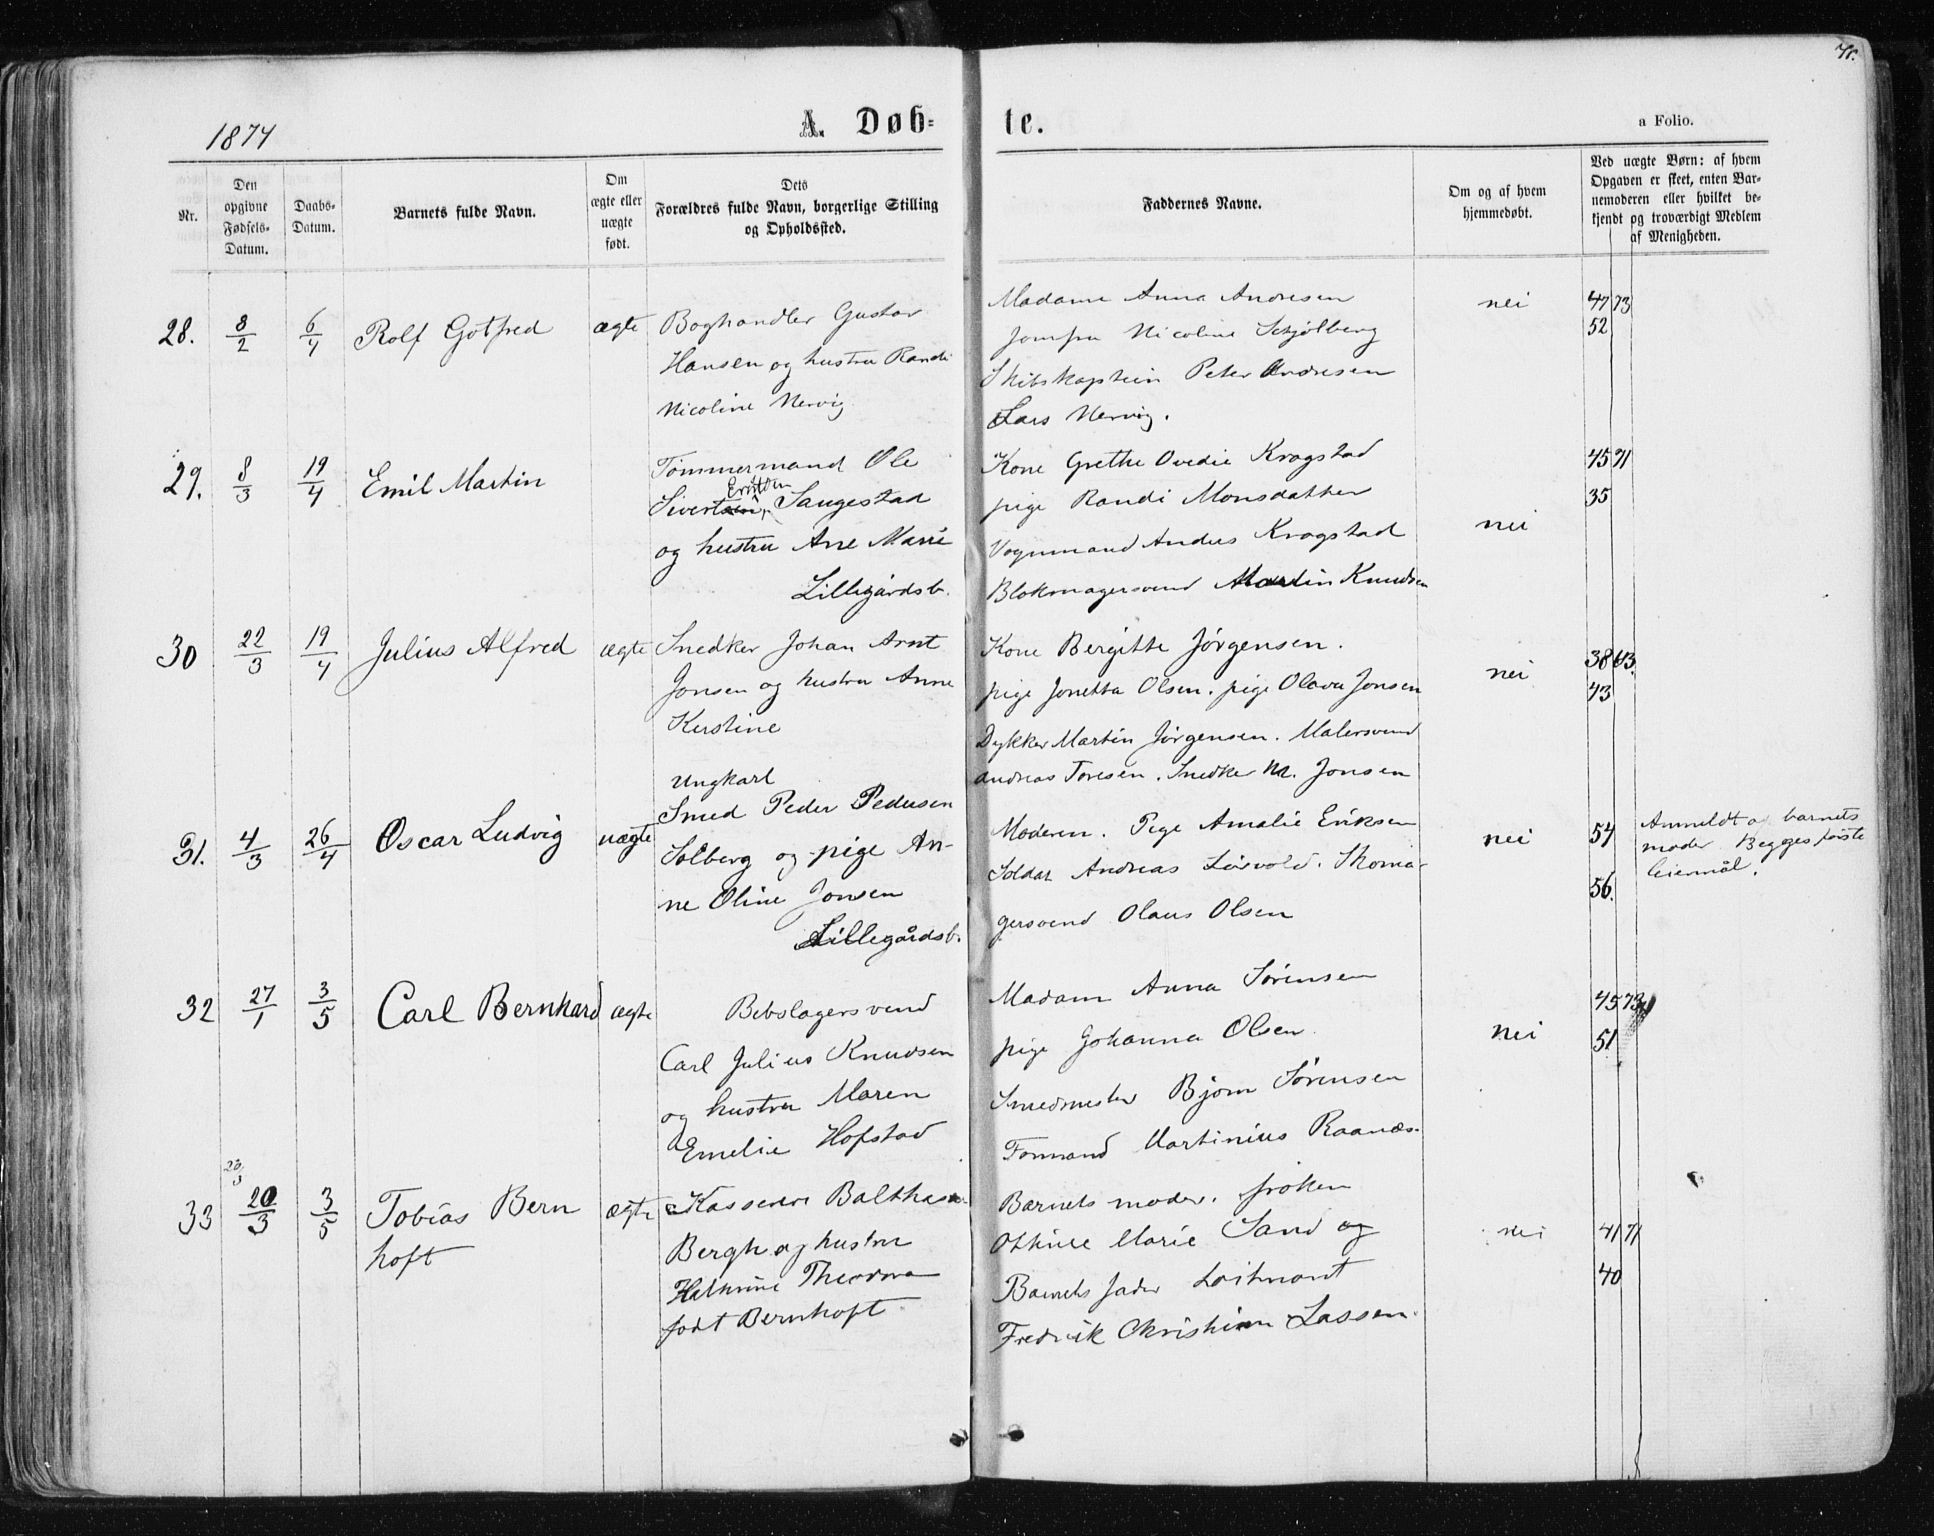 1874
A. Døb-
te.
a Folio.
Nr.
Den opgivne Fødsels-Datum.
Daabs-Datum.
Barnets fulde Navn.
Om ægte eller uægte født.
Dets Forældres fulde Navn, borgerlige Stilling og Opholdssted.
Faddernes Navne.
Om og af hvem hjemmedøbt.
Ved uægte Børn: af hvem Opgaven er skeet, enten Bar-nemoderen eller hvilket be-kjendt og troværdigt Medlem af Menigheden.
28. 8/2 6/4 Rolf Gotfred ægte
Boghandler Gustav
Hansen og hustru Randi
Nicoline Nervig
Madame Anna Andresen
Jomfru Nicoline Schjölberg
Skibskaptein Peter Andresen
Lars Nervig.
nei
47 73
52
29. 8/3 19/4 Emil Martin
Tömmermand Ole
Sivertsen, Saugestad
og hustru Ane Marie
Lillegårdsb.
Kone Grethe Ovedie Kragstad
pige Randi Monsdatter
Vognmand Anders Kragstad
Blokmagersvend Martin Knudsen
nei
45 71
35
30 22/3 19/4 Julius Alfred ægte
Snedker Johan Arnt
Jonsen og hustru Anne
Kerstine
Kone Bergitte Jörgensen.
pige Jonetta Olsen. pige Olava Jonsen
Dykker Martin Jörgensen. Malersvend
Andreas Toresen. Snedker M. Jonsen
nei
38 63.
43
31. 4/3 26/4 Oscar Ludvig uægte
Ungkarl
Smed Peder Pedersen
Solberg og pige An-
ne Oline Jonsen
Lillegårdsb.
Moderen. Pige Amalie Eriksen
Soldat Andreas . Skoma-
gersvend Olaus Olsen
nei
54
56.
Anmeldt af barnets
moder. Begges förste
leiermål.
32 27/1 3/5 Carl Bernhard ægte
Bebslagersvend
Carl Julius Knudsen
og hustru Maren
Emelie Hofstad
Madam Anna Sörensen
pige Johanna Olsen
Smedmester Bjorn Sörensen
Formand Martinius Raanæs.
nei
45 73
51
20/3
33 20/3 3/5 Tobias Bern
hoft
ægte
Kasserer Balthasar
Bergh og hustru
Hathrine Theodora
født Bernhoft
Barnets moder. fröken
Othilie Marie Sand og
Barnets fader Loitnant
Fredrik Christian Lassen.
nei
41 71
40